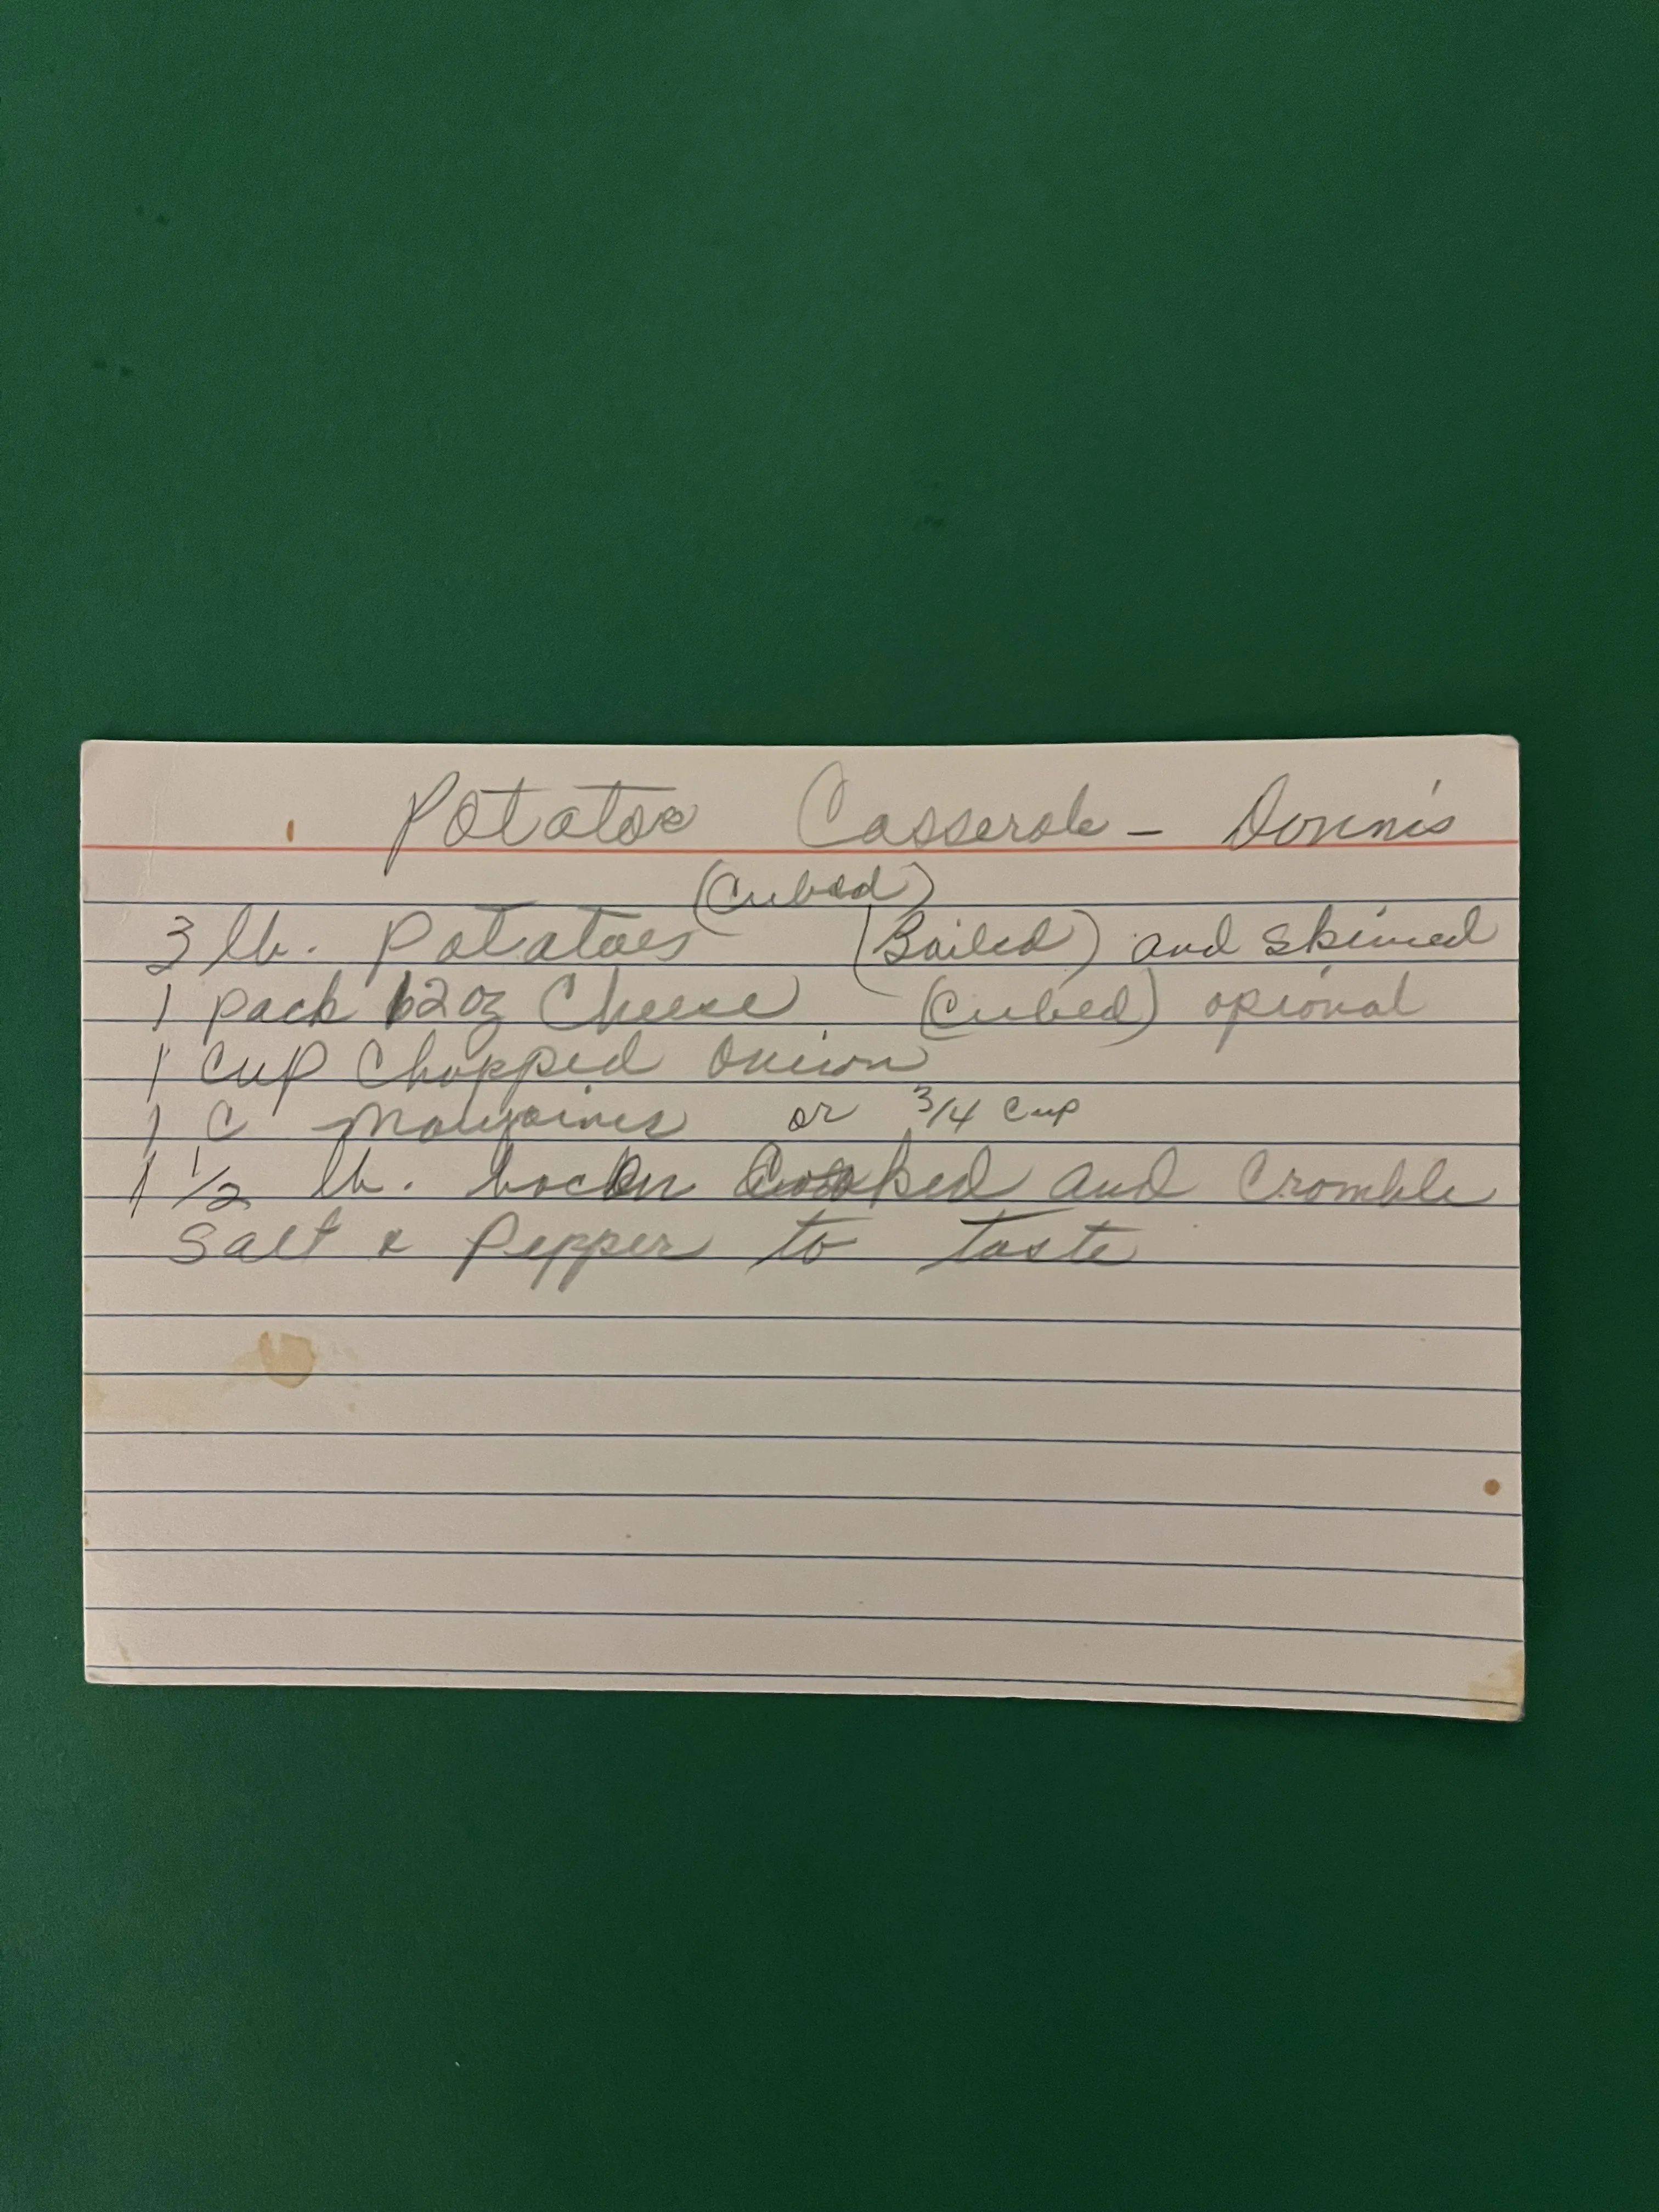 Potatoe Casserole - Donni's
(Cubed)
3 lb. Potatoes (Boiled) and skinned
1 pack 12 oz Cheese (Cubed) opional
1 cup Chopped Onion
1 C or 3/4 cup
1 1/2 lb. bacon Cooked and Cromble
Salt & Pepper to taste